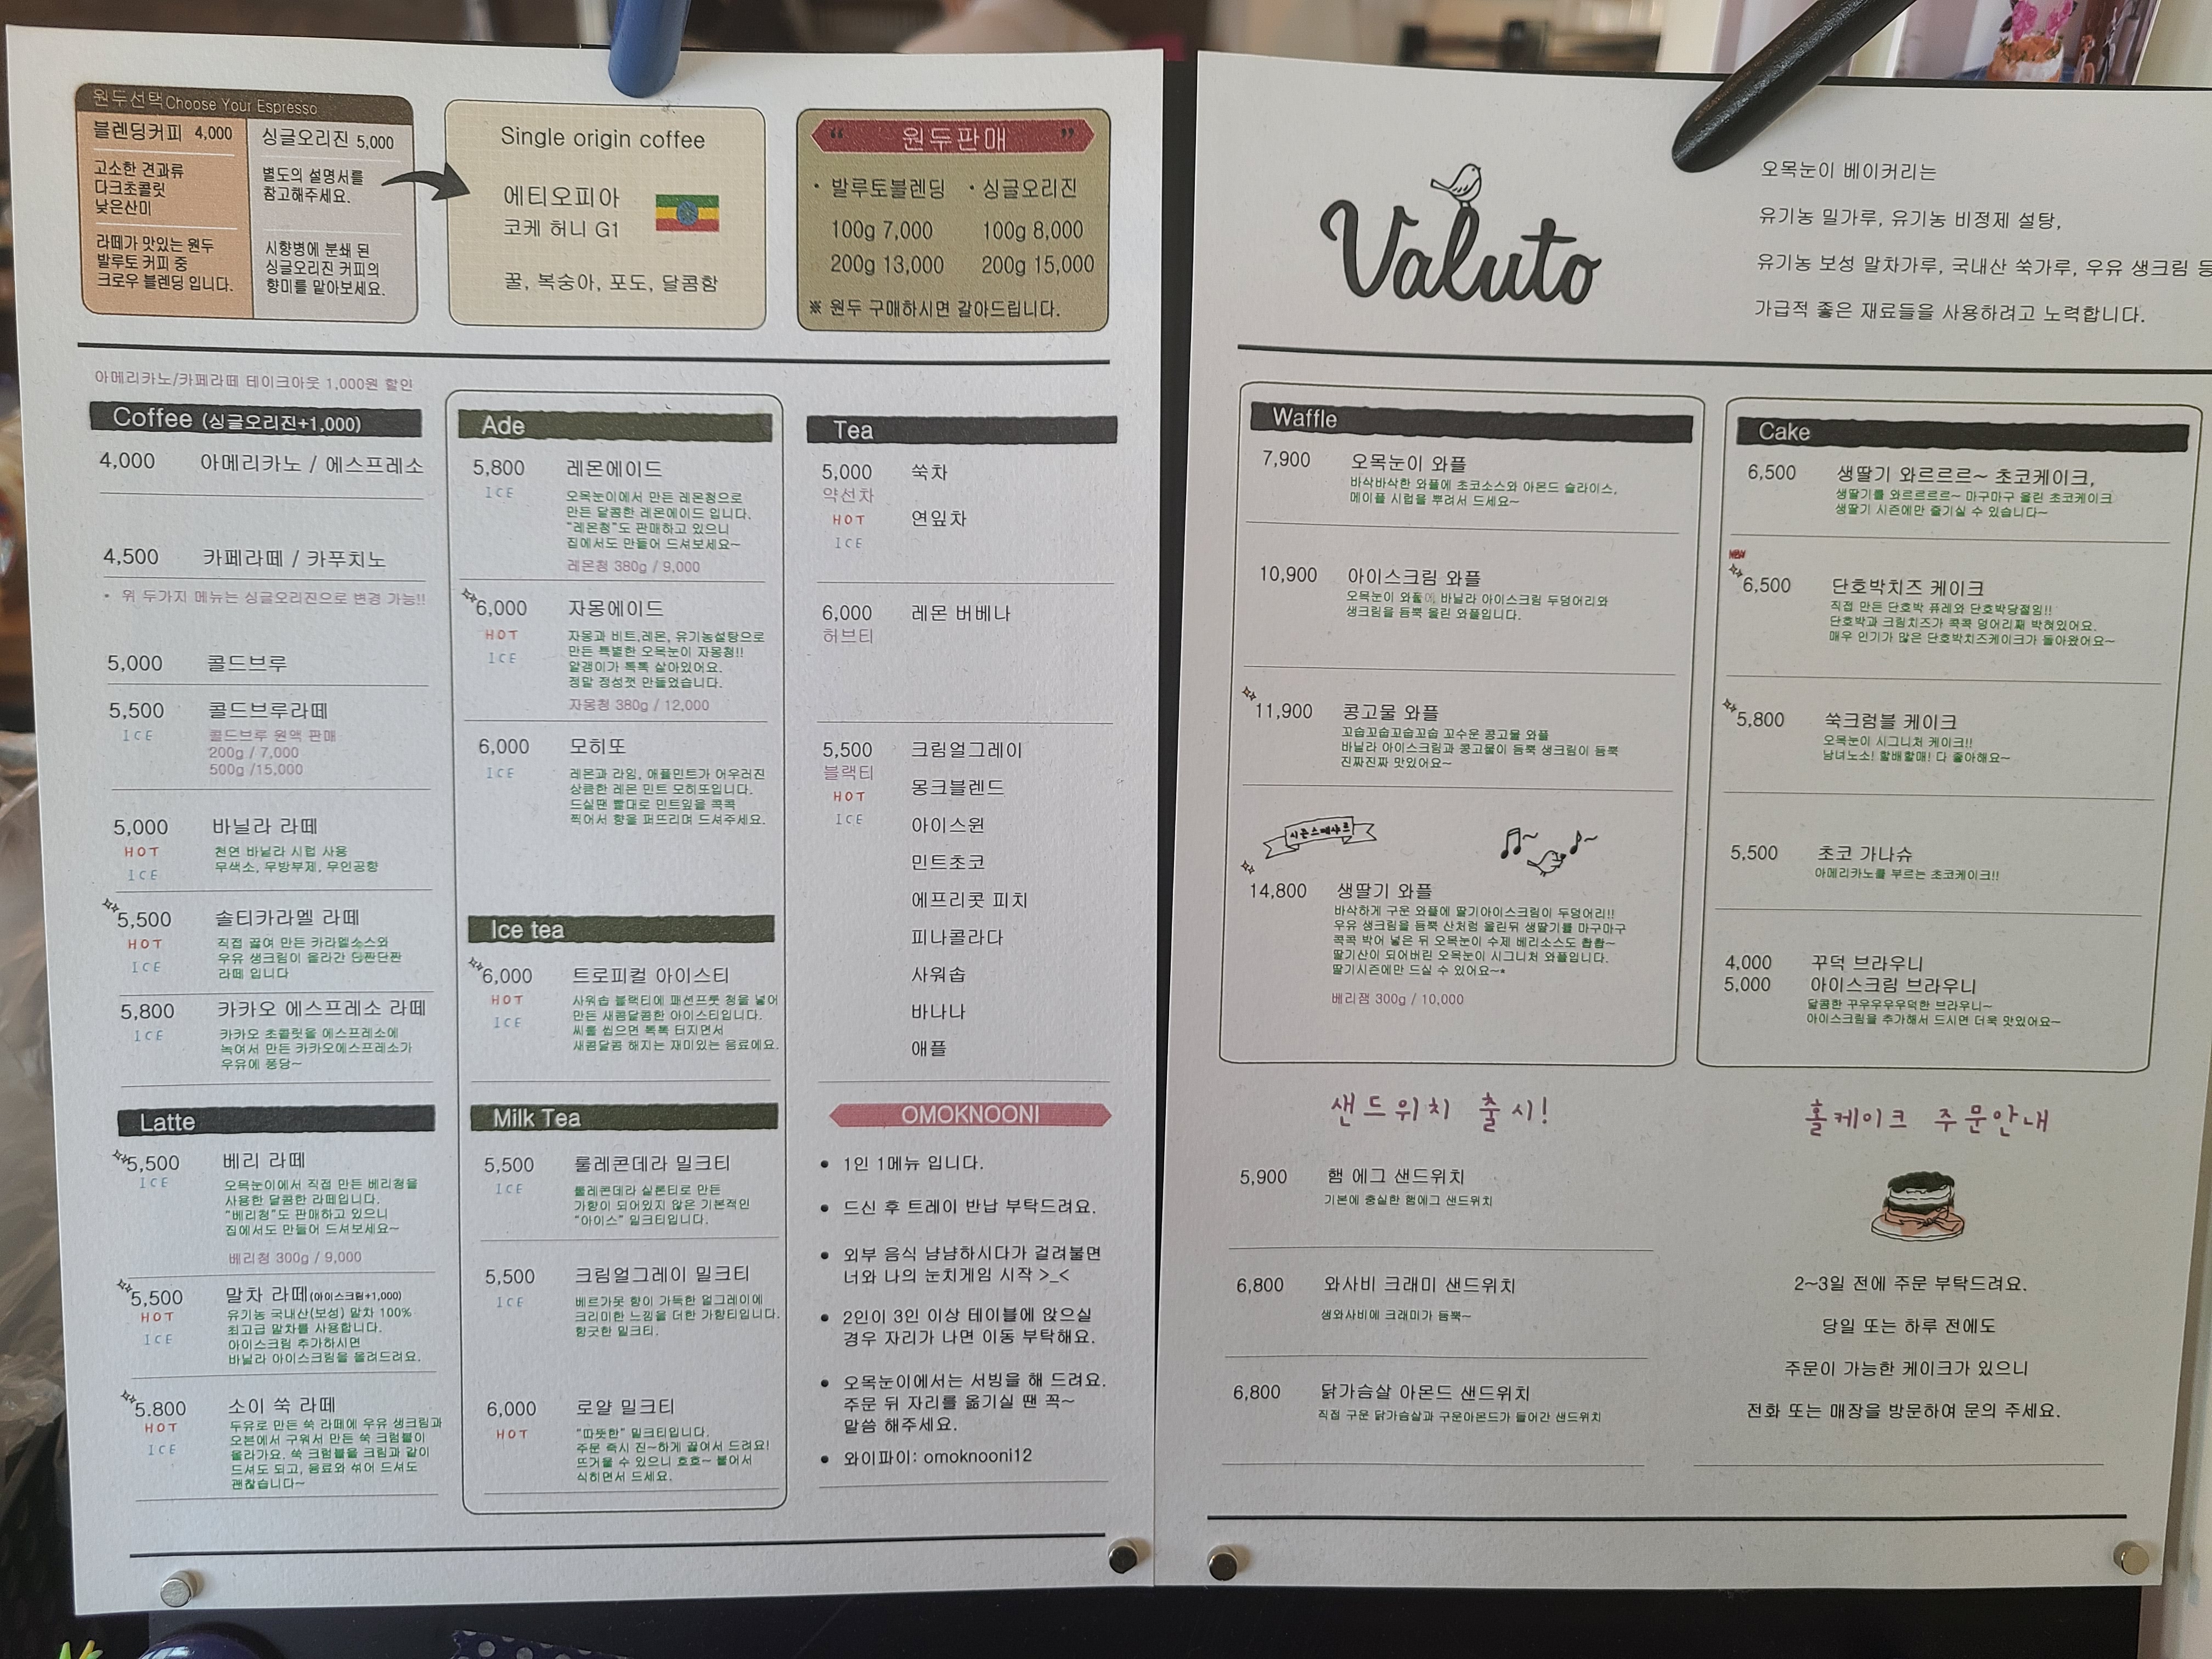 원두선택 Choose Your Espresso
블렌딩커피 4,000
고소한 견과류
다크초콜릿
낮은산미
라떼가 맛있는 원두
발루토 커피 중
크로우 블렌딩 입니다.
싱글오리진 5,000
별도의 설명서를
참고해주세요.
시향병에 분쇄 된
싱글오리진 커피의
향미를 맡아보세요.
Single origin coffee
에티오피아
코케 허니 G1
꿀, 복숭아, 포도, 달콤함
“ 원두판매 ”
· 발루토블렌딩
100g 7,000
200g 13,000
· 싱글오리진
100g 8,000
200g 15,000
※ 원두 구매하시면 갈아드립니다.
아메리카노/카페라떼 테이크아웃 1,000원 할인
Coffee (싱글오리진+1,000)
4,000 아메리카노 / 에스프레소
4,500 카페라떼 / 카푸치노
• 위 두가지 메뉴는 싱글오리진으로 변경 가능!!
5,000 콜드브루
5,500 콜드브루라떼
ICE 콜드브루 원액 판매
200g / 7,000
500g /15,000
5,000 바닐라 라떼
HOT 천연 바닐라 시럽 사용
ICE 무색소, 무방부제, 무인공향
5,500 솔티카라멜 라떼
HOT 직접 끓여 만든 카라멜소스와
ICE 우유 생크림이 올라간 단짠단짠
라떼 입니다
5,800 카카오 에스프레소 라떼
ICE 카카오 초콜릿을 에스프레소에
녹여서 만든 카카오에스프레소가
우유에 퐁당~
Latte
5,500 베리 라떼
ICE 오목눈이에서 직접 만든 베리청을
사용한 달콤한 라떼입니다.
"베리청"도 판매하고 있으니
집에서도 만들어 드셔보세요~
베리청 300g / 9,000
5,500 말차 라떼(아이스크림+1,000)
HOT 유기농 국내산(보성) 말차 100%
ICE 최고급 말차를 사용합니다.
아이스크림 추가하시면
바닐라 아이스크림을 올려드려요.
5.800 소이 쑥 라떼
HOT 두유로 만든 쑥 라떼에 우유 생크림과
ICE 오븐에서 구워서 만든 쑥 크럼블이
올라가요. 쑥 크럼블을 크림과 같이
드셔도 되고, 음료와 섞어 드셔도
괜찮습니다~
Ade
5,800 레몬에이드
ICE 오목눈이에서 만든 레몬청으로
만든 달콤한 레몬에이드 입니다.
"레몬청"도 판매하고 있으니
집에서도 만들어 드셔보세요~
레몬청 380g / 9,000
6,000 자몽에이드
HOT 자몽과 비트,레몬, 유기농설탕으로
ICE 만든 특별한 오목눈이 자몽청!!
알갱이가 톡톡 살아있어요.
정말 정성껏 만들었습니다.
자몽청 380g / 12,000
6,000 모히또
ICE 레몬과 라임, 애플민트가 어우러진
상큼한 레몬 민트 모히또입니다.
드실땐 빨대로 민트잎을 콕콕
찍어서 향을 퍼뜨리며 드셔주세요.
Ice tea
6,000 트로피컬 아이스티
HOT 사워솝 블랙티에 패션프룻 청을 넣어
ICE 만든 새콤달콤한 아이스티입니다.
씨를 씹으면 톡톡 터지면서
새콤달콤 해지는 재미있는 음료에요.
Milk Tea
5,500 룰레콘데라 밀크티
ICE 룰레콘데라 실론티로 만든
가향이 되어있지 않은 기본적인
"아이스" 밀크티입니다.
5,500 크림얼그레이 밀크티
ICE 베르가못 향이 가득한 얼그레이에
크리미한 느낌을 더한 가향티입니다.
향긋한 밀크티.
6,000 로얄 밀크티
HOT "따뜻한" 밀크티입니다.
주문 즉시 진~하게 끓여서 드려요!
뜨거울 수 있으니 호호~ 불어서
식히면서 드세요.
Tea
5,000 쑥차
약선차
HOT 연잎차
ICE
6,000 레몬 버베나
허브티
5,500 크림얼그레이
블랙티 몽크블렌드
HOT
ICE 아이스윈
민트초코
에프리콧 피치
피나콜라다
사워솝
바나나
애플
OMOKNOONI
• 1인 1메뉴 입니다.
• 드신 후 트레이 반납 부탁드려요.
• 외부 음식 냠냠하시다가 걸려불면
너와 나의 눈치게임 시작 >_<
• 2인이 3인 이상 테이블에 앉으실
경우 자리가 나면 이동 부탁해요.
• 오목눈이에서는 서빙을 해 드려요.
주문 뒤 자리를 옮기실 땐 꼭~
말씀 해주세요.
• 와이파이: omoknooni12
Valuto
오목눈이 베이커리는
유기농 밀가루, 유기농 비정제 설탕,
유기농 보성 말차가루, 국내산 쑥가루, 우유 생크림 등
가급적 좋은 재료들을 사용하려고 노력합니다.
Waffle
7,900 오목눈이 와플
바삭바삭한 와플에 초코소스와 아몬드 슬라이스,
메이플 시럽을 뿌려서 드세요~
10,900 아이스크림 와플
오목눈이 와플에 바닐라 아이스크림 두덩어리와
생크림을 듬뿍 올린 와플입니다.
11,900 콩고물 와플
꼬숩꼬숩꼬숩꼬숩 꼬수운 콩고물 와플
바닐라 아이스크림과 콩고물이 듬뿍 생크림이 듬뿍
진짜진짜 맛있어요~
시즌스페샤르
14,800 생딸기 와플
바삭하게 구운 와플에 딸기아이스크림이 두덩어리!!
우유 생크림을 듬뿍 산처럼 올린뒤 생딸기를 마구마구
콕콕 박어 넣은 뒤 오목눈이 수제 베리소스도 촵촵~
딸기산이 되어버린 오목눈이 시그니처 와플입니다.
딸기시즌에만 드실 수 있어요~*
베리잼 300g / 10,000
Cake
6,500 생딸기 와르르르~ 초코케이크,
생딸기를 와르르르르~ 마구마구 올린 초코케이크
생딸기 시즌에만 즐기실 수 있습니다~
NEW
6,500 단호박치즈 케이크
직접 만든 단호박 퓨레와 단호박당절임!!
단호박과 크림치즈가 콕콕 덩어리째 박혀있어요.
매우 인기가 많은 단호박치즈케이크가 돌아왔어요~
5,800 쑥크럼블 케이크
오목눈이 시그니처 케이크!!
남녀노소! 할배할매! 다 좋아해요~
5,500 초코 가나슈
아메리카노를 부르는 초코케이크!!
4,000 꾸덕 브라우니
5,000 아이스크림 브라우니
달콤한 꾸우우우우덕한 브라우니~
아이스크림을 추가해서 드시면 더욱 맛있어요~
샌드위치 출시!
5,900 햄 에그 샌드위치
기본에 충실한 햄에그 샌드위치
6,800 와사비 크래미 샌드위치
생와사비에 크래미가 듬뿍~
6,800 닭가슴살 아몬드 샌드위치
직접 구운 닭가슴살과 구운아몬드가 들어간 샌드위치
홀케이크 주문안내
2~3일 전에 주문 부탁드려요.
당일 또는 하루 전에도
주문이 가능한 케이크가 있으니
전화 또는 매장을 방문하여 문의 주세요.